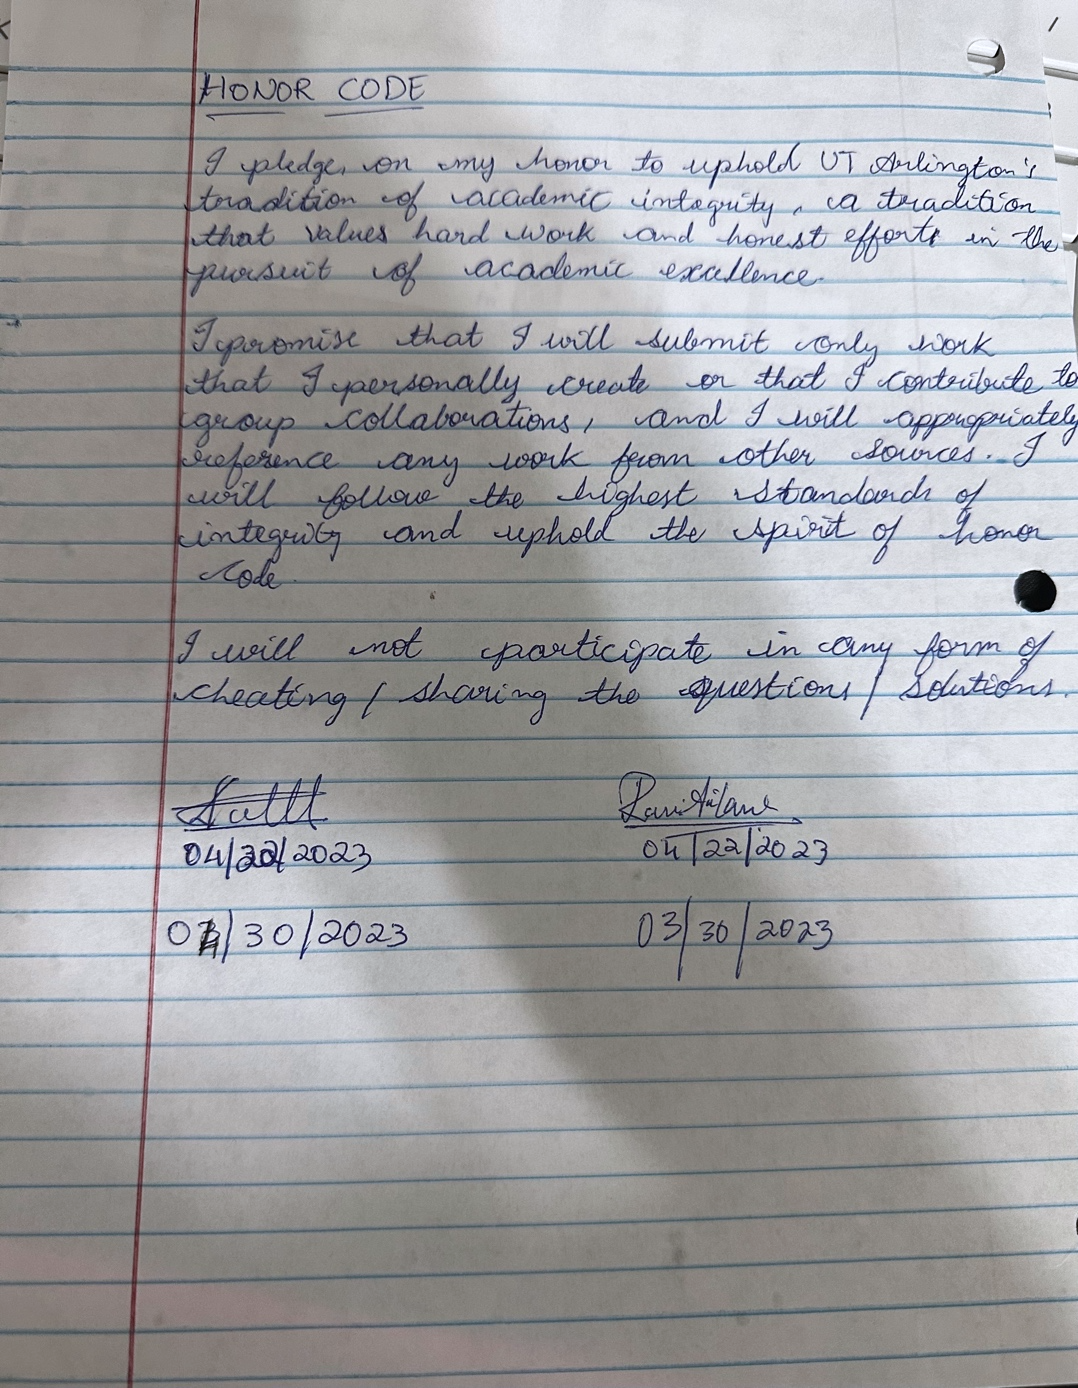 HONOR CODE
I pledge, on my honor to uphold UT Arlington's
tradition of academic integrity, a tradition
that values hard work and honest efforts in the
pursuit of academic excellence.
I promise that I will submit only work
that I personally create or that I contribute to
group collaborations, and I will appropriately
reference any work from other sources. I
will follow the highest standards of
integrity and uphold the spirit of honor
code.
I will not participate in any form of
cheating / sharing the questions / solutions.
04/22/2023 04/22/2023
/30/2023 03/30/2023